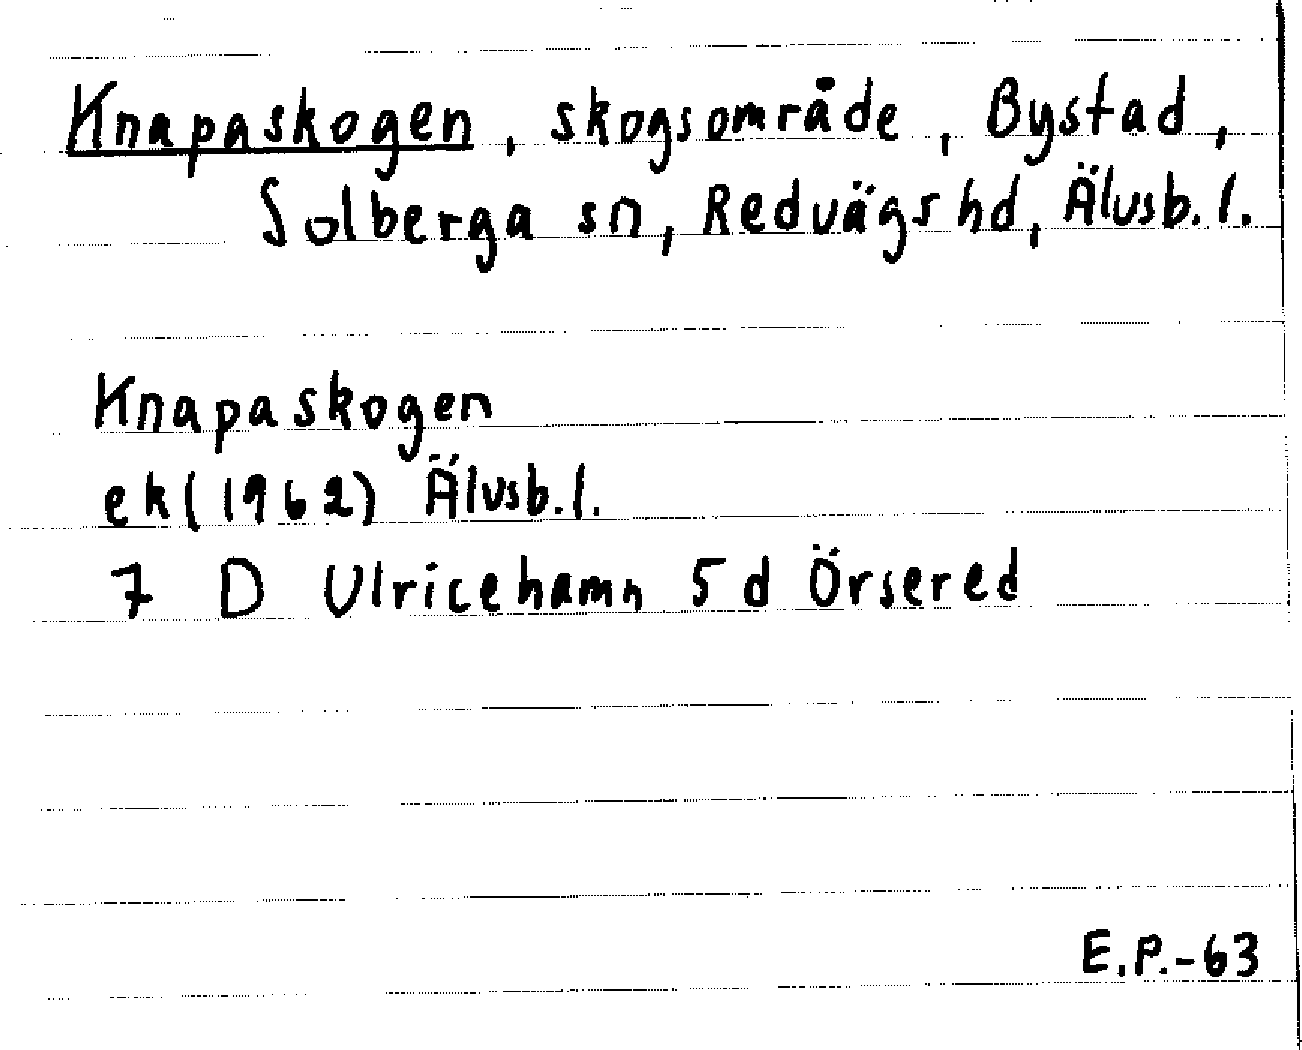 Knapaskogen, skogsområde, Bystad,
Solberga sn, Redvägs hd, Älvsb. l.
Knapaskogen
ek (1962) Älvsb. l.
7 D Ulricehamn 5 d Örsered
E.P.-63